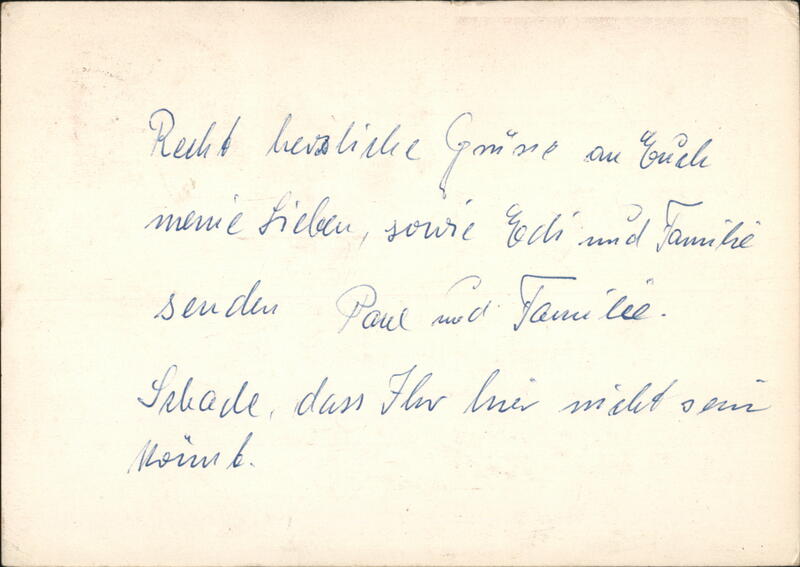 Recht herzliche Grüsse an Euch
meine Lieben, sowie Edi und Familie
senden Paul und Familie.
Schade, dass Ihr hier nicht sein
könnt.